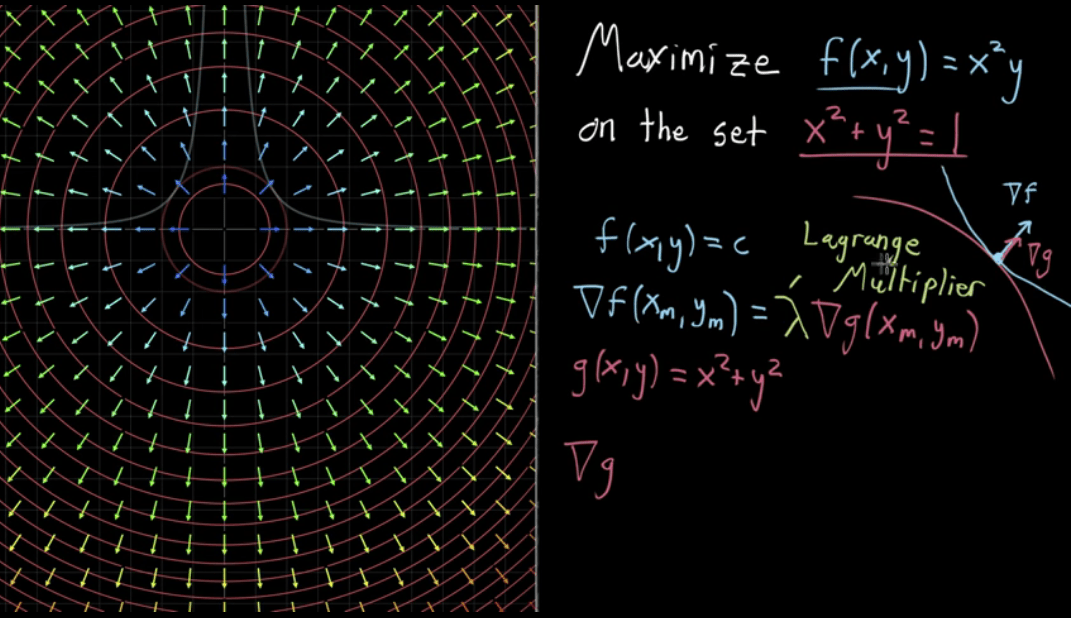 Maximize f(x,y) = x²y
on the set x² + y² = 1
∇f
∇g
f(x,y) = c
Lagrange
Multiplier
∇f(xₘ, yₘ) = λ ∇g(xₘ, yₘ)
g(x,y) = x² + y²
∇g